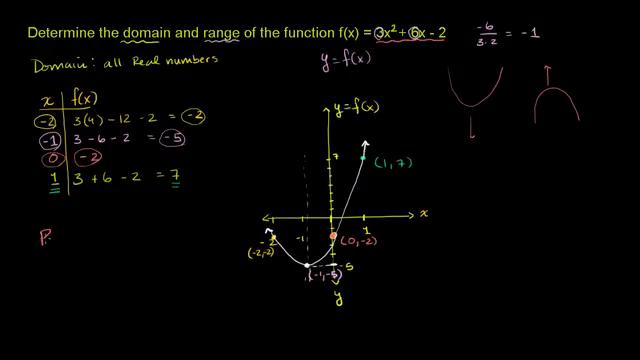 Determine the domain and range of the function f(x) = 3x² + 6x - 2
-6
3·2
= -1
Domain: all Real numbers
y = f(x)
x f(x)
-2 3(4) - 12 - 2 = -2
-1 3 - 6 - 2 = -5
0 -2
1 3 + 6 - 2 = 7
R
y = f(x)
7
(1, 7)
x
-2
-1
1
(-2, -2)
(0, -2)
(-1, -5)
-5
y